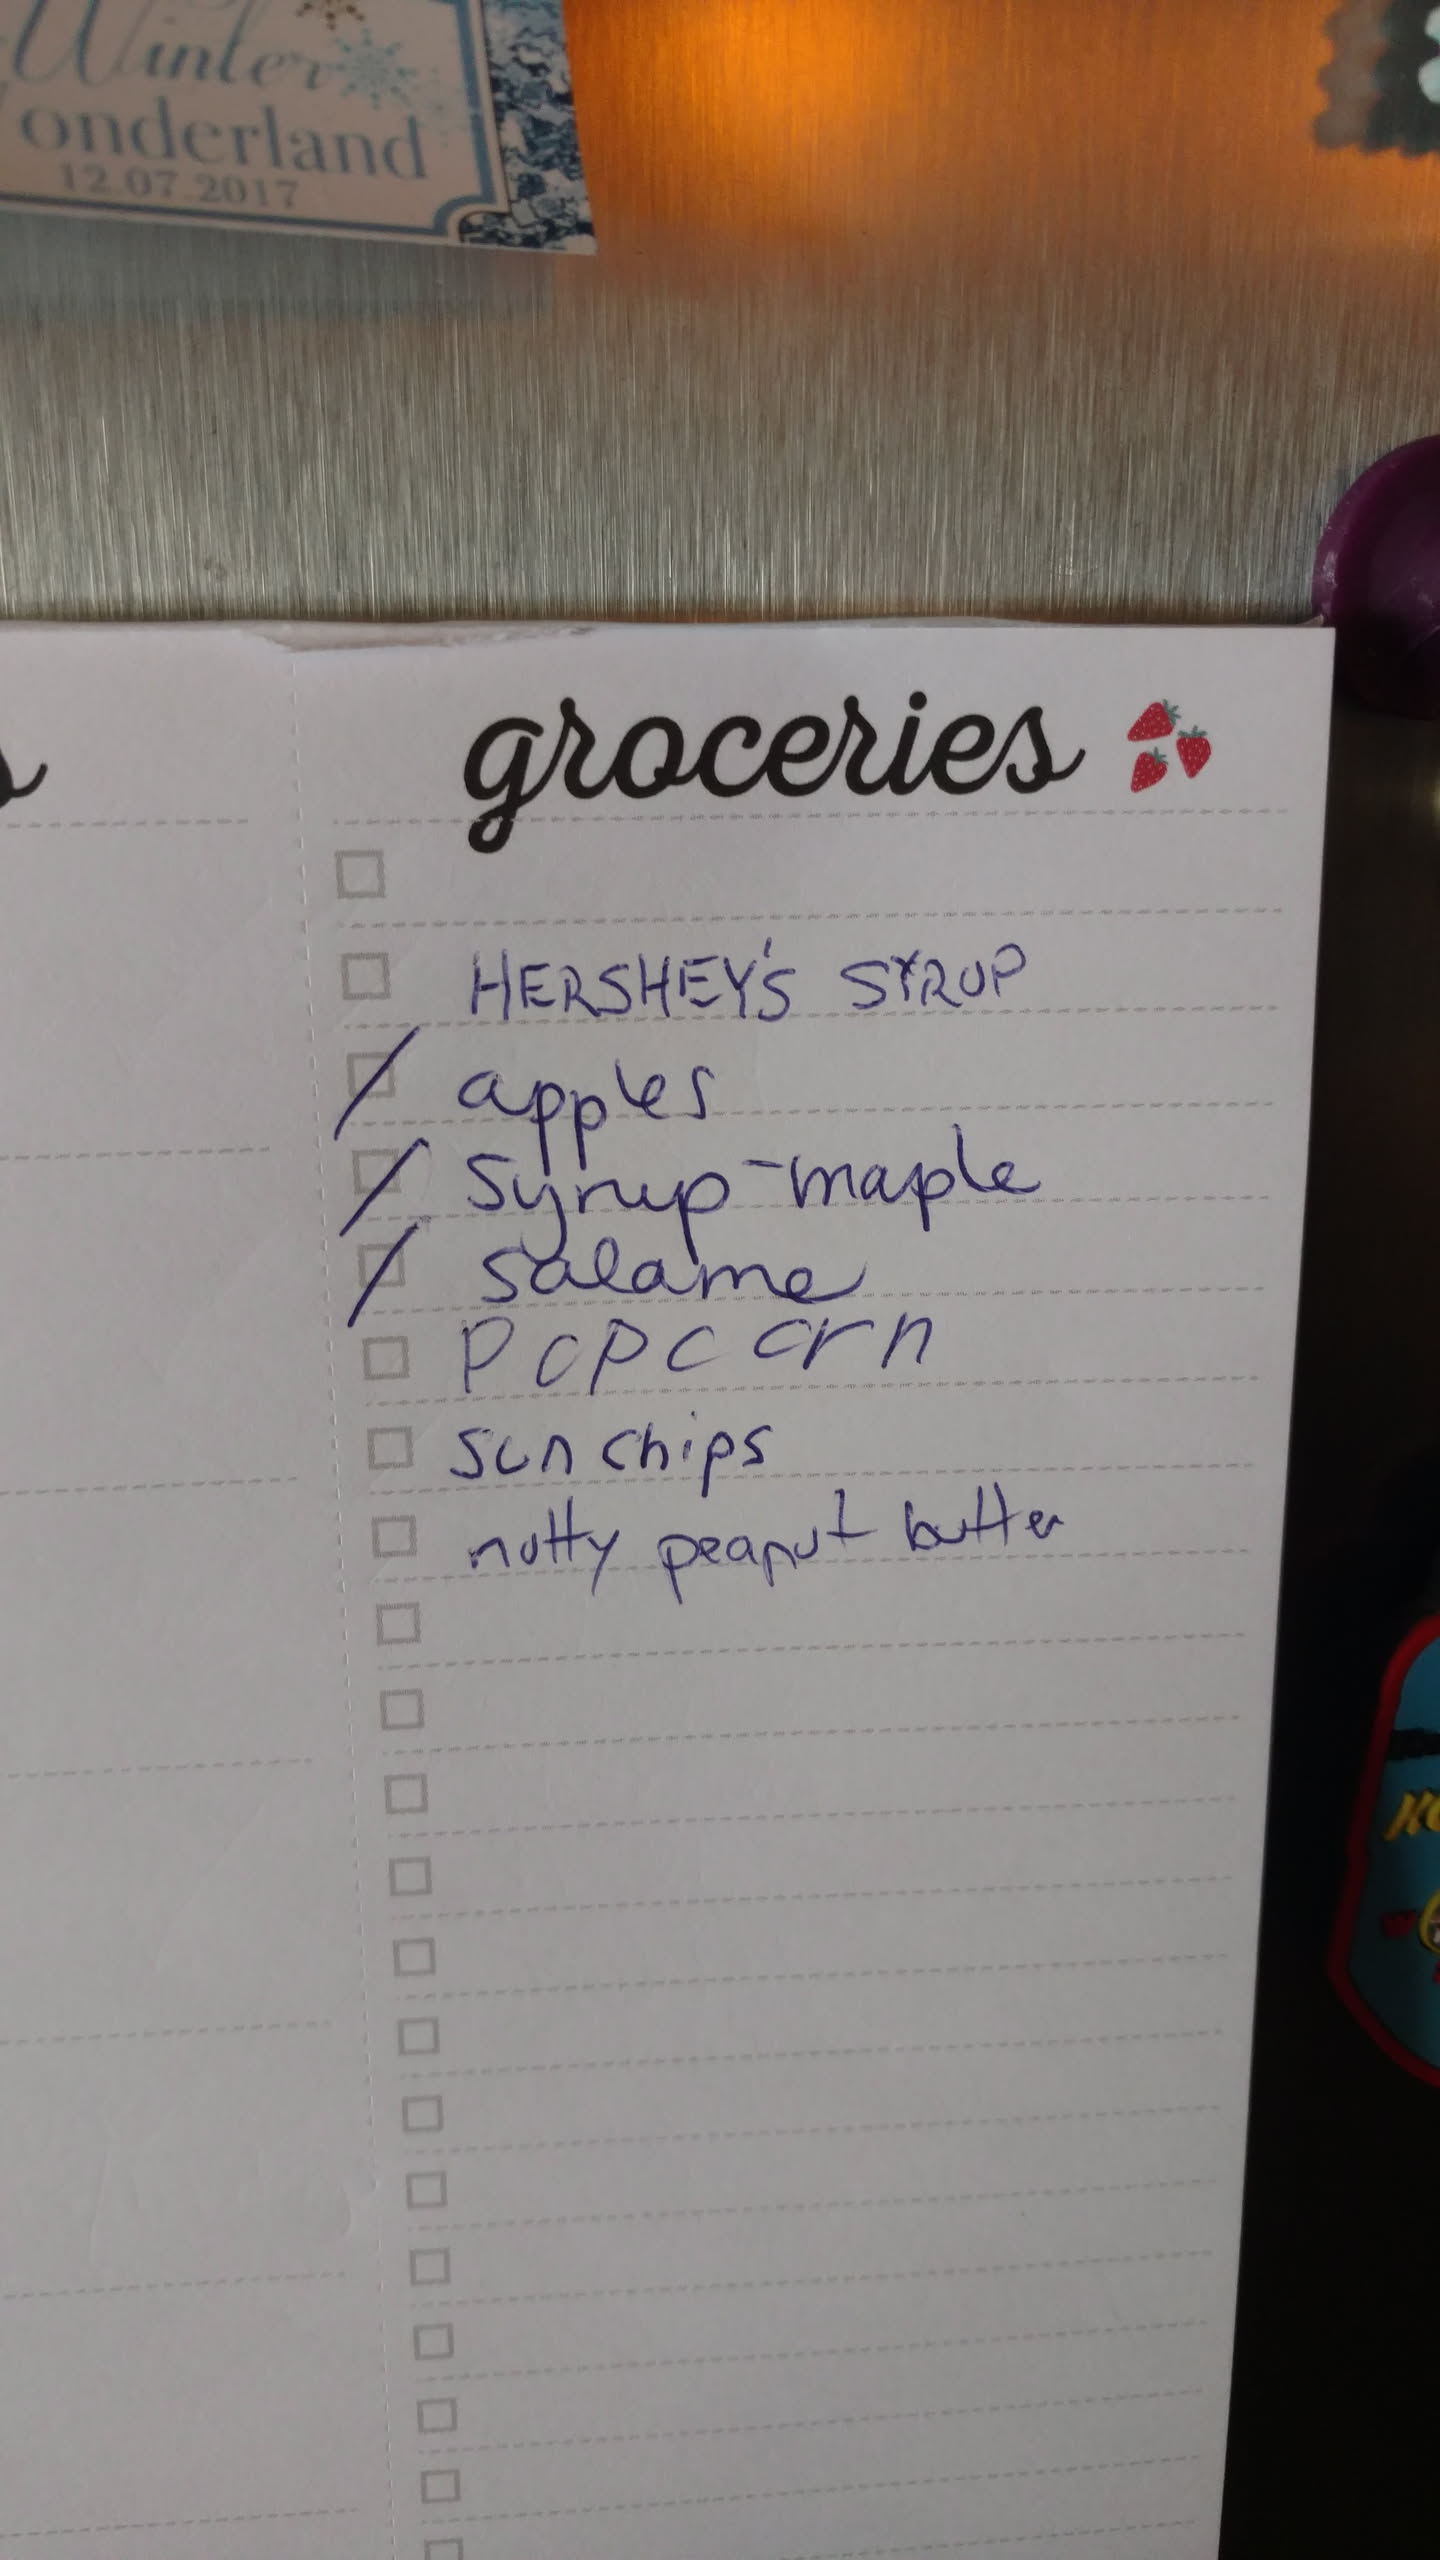 Winter
onderland
12.07.2017
groceries
HERSHEY'S SYRUP
apples
Syrup-maple
salame
Popcorn
sun chips
nutty peanut butter